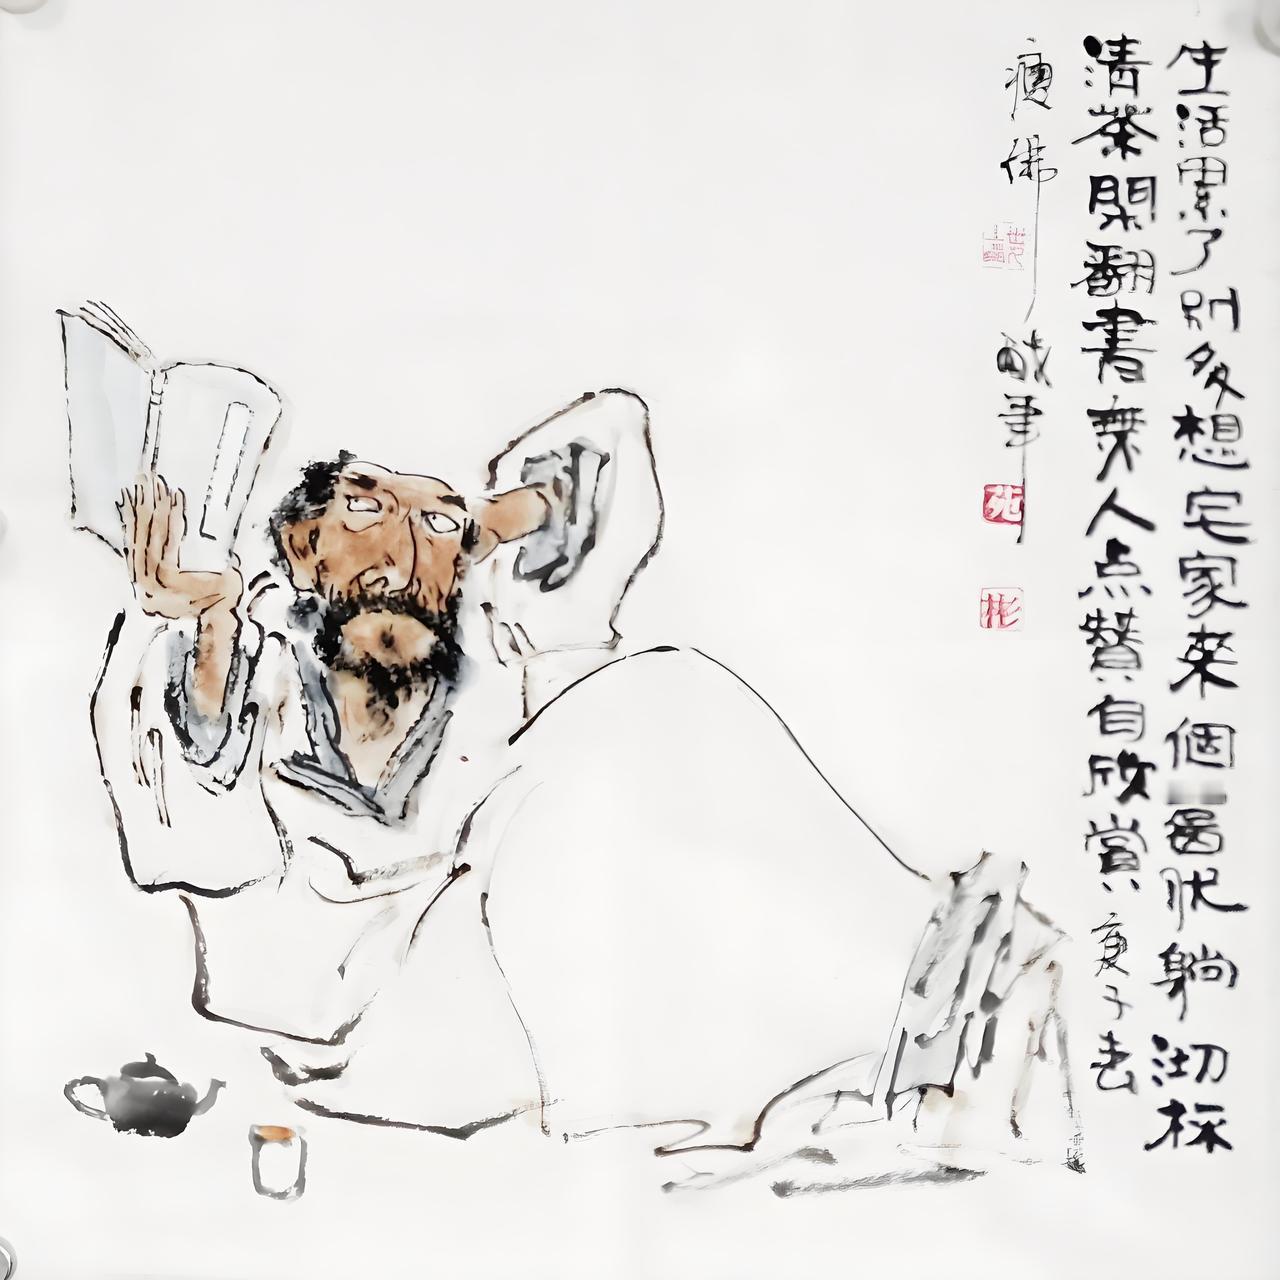 生活累了别多想宅家來個葛优躺沏杯
清茶閑翻書無人点贊自欣賞 庚子
瘦佛
彬